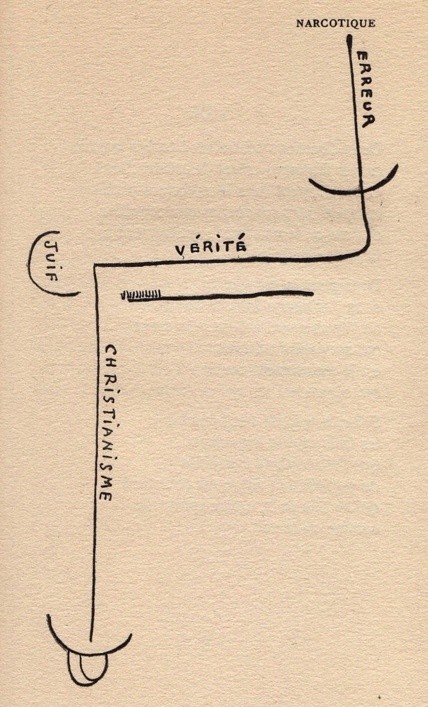 NARCOTIQUE
ERREUR
VÉRITÉ
JUiF
CHRiSTiANiSME